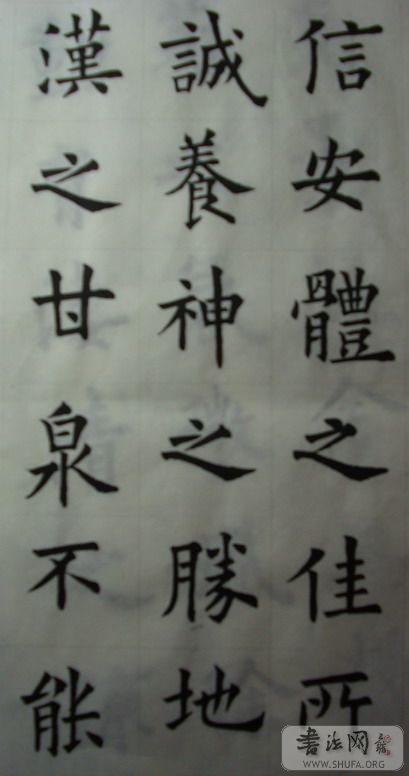 信安體之佳所
誠養神之勝地
漢之甘泉不能
書法网
WWW.SHUFA.ORG